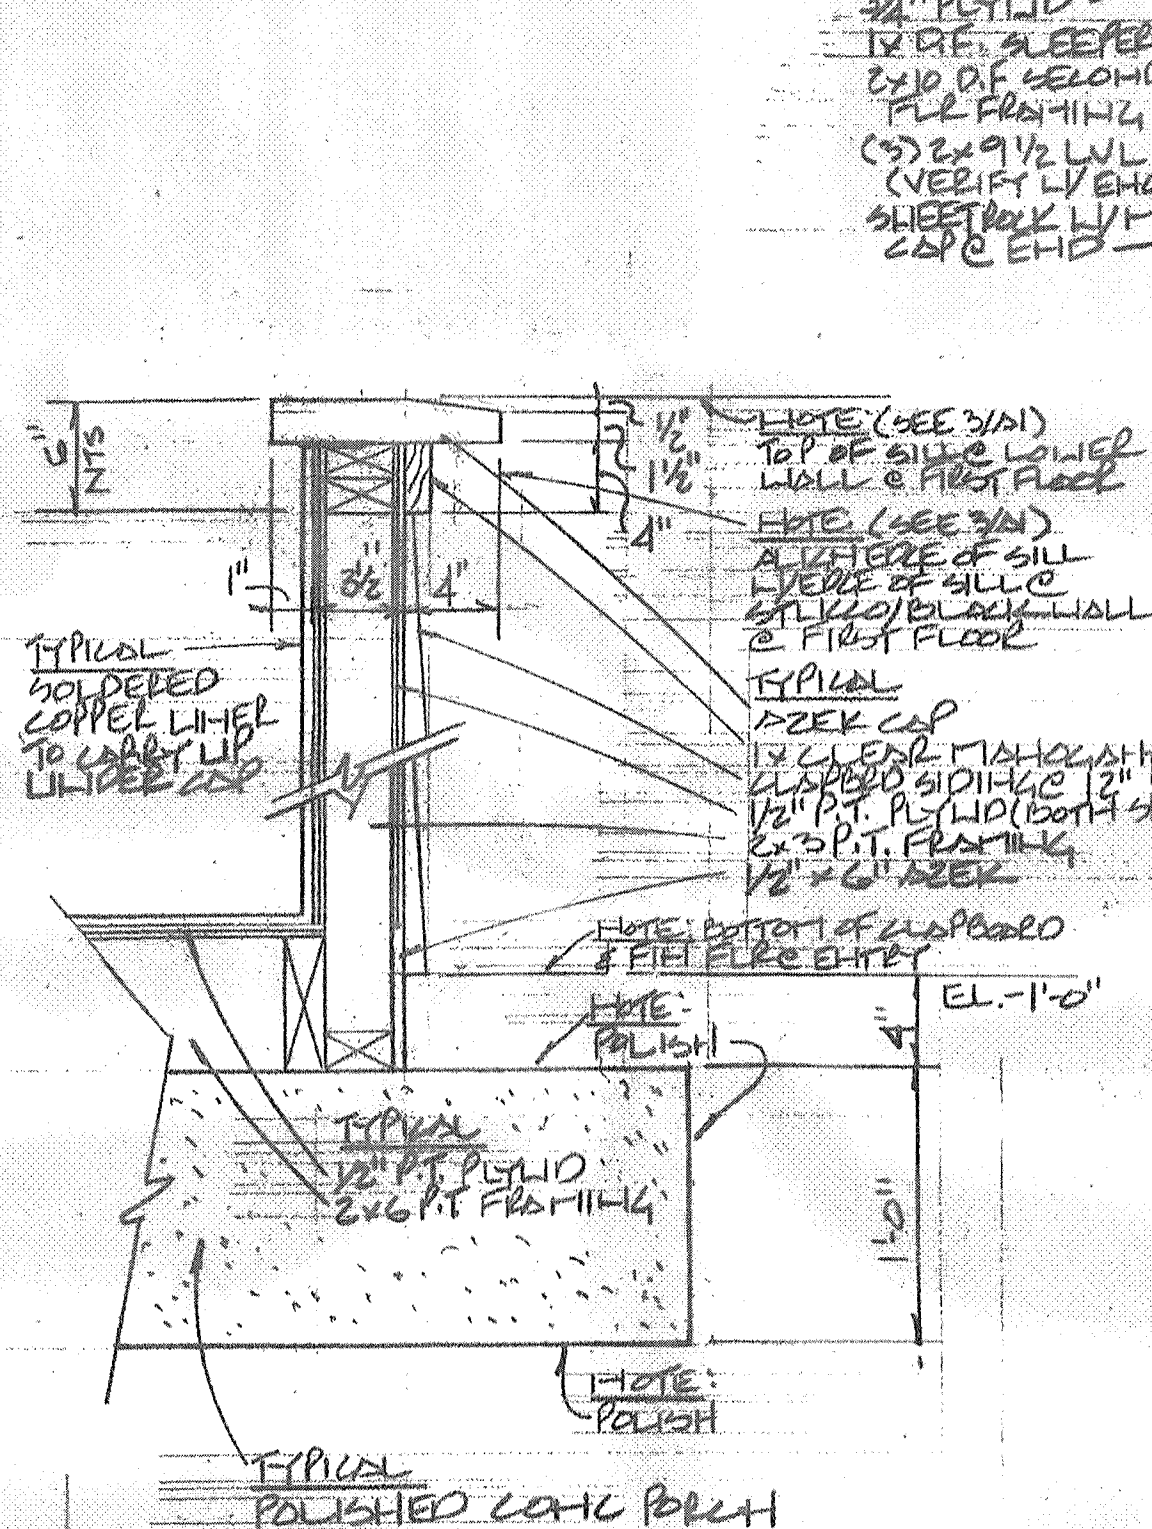 3/4" PLYWD
1x D.F. SLEEPER
2x10 D.F SECOND
FLR FRAMING
(3) 2x9 1/2 LVL
(VERIFY W/ENG
SHEETROCK W/M
CAP @ END
6"
NTS
1/2"
1 1/2"
4"
NOTE: (SEE 3/A1)
TOP OF SILL @ LOWER
WALL @ FIRST FLOOR
NOTE: (SEE 3/A1)
ALIGN EDGE OF SILL
W/EDGE OF SILL @
STUCCO/BLACK WALL
@ FIRST FLOOR
1"
3 1/2"
4"
TYPICAL
SOLDERED
COPPER LINER
TO CARRY UP
UNDER CAP
TYPICAL
AZEK CAP
1x CLEAR MAHOGAN
CLAPBRD SIDING @ 12"
1/2" P.T. PLYWD (BOTH S
2x3 P.T. FRAMING
1/2" x 6" AZEK
NOTE: BOTTOM OF CLAPBOARD
& FIN FLR @ ENTRY
EL. -1'-0"
NOTE:
POLISH
4"
TYPICAL
1/2" P.T. PLYWD
2x6 P.T FRAMING
1'-0"
NOTE:
POLISH
TYPICAL
POLISHED CONC PORCH